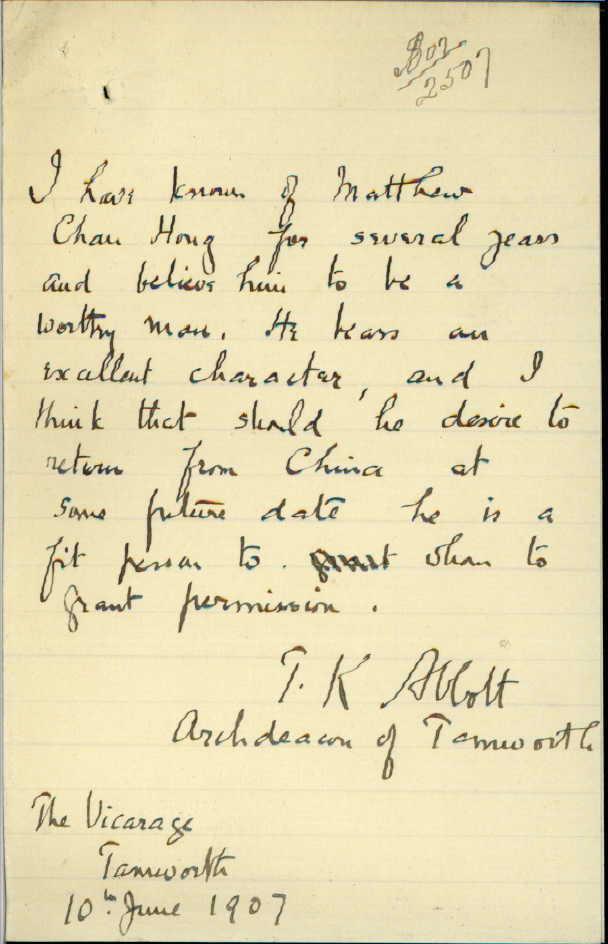 2507
I have known of Matthew
Chan Hong for several years
and believe him to be a
worthy man. He bears an
excellent character, and I
think that should he desire to
return from China at
some future date he is a
fit person to. grant whom to
grant permission.
T. K Abbott
Archdeacon of Tamworth
The Vicarage
Tamworth
10th June 1907